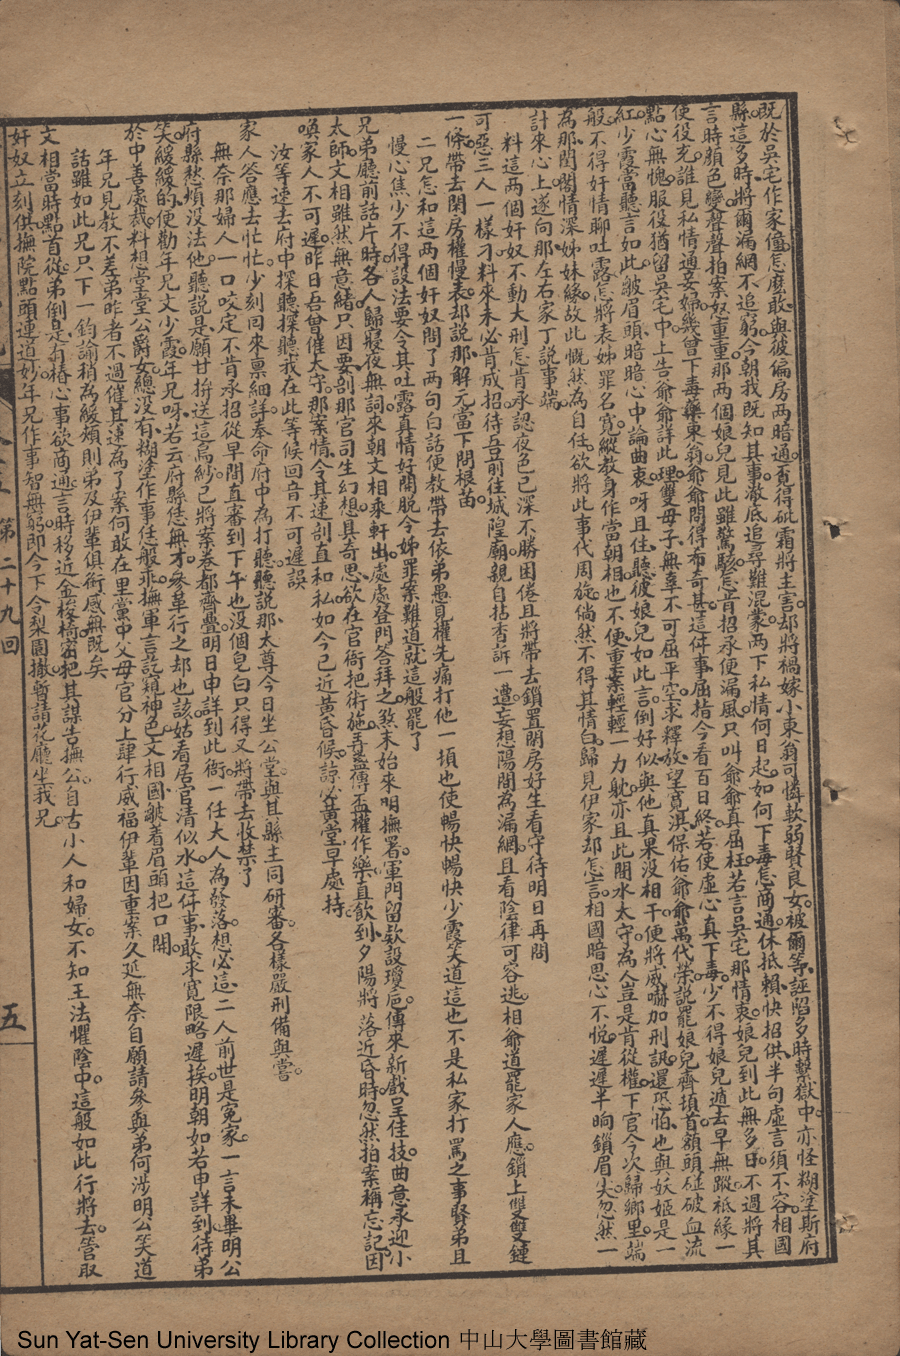 既於吳宅作家僮怎麼敢與彼偏房兩暗通覓得砒霜將主害却將禍嫁小東翁可憐軟弱賢良女被爾等誣陷多時繫獄中亦怪糊塗斯府
縣這多時將爾漏網不追窮今朝我既知其事澈底追尋難混蒙兩下私情何日起如何下毒怎商通休抵賴快招供半句虛言須不容相國
言時顏色變聲聲拍案怒重重那兩個娘兒見此雖驚駭怎肯招承便漏風只叫爺爺真屈枉若言吳宅那情衷娘兒到此無多日不過將其
使役充誰見私情通妾婦幾曾下毒藥東翁爺爺問得布奇甚這件事屈指今看百日終若使虛心真下毒少不得娘兒遁去早無蹤祗緣一
點心無愧服役猶留吳宅中上告爺爺詳此理雙母子無辜不可屈平空求釋放望寬淇保佑爺爺萬代榮說罷娘兒齊頓首額頭碰破血流
紅少霞當聽言如此皺眉頭暗暗心中論曲衷呀且住聽彼娘兒如此言倒好似與他真果沒相干便將威嚇加刑訊還恐怕也與妖姬是一
般不得奸情聊吐露怎將表姊罪名寬縱教身作當朝相也不便重案輕輕一力躭亦且此間水太守為人豈是肯從權下官今次歸鄉里端
為那閨閣情深姊妹緣故此慨然為自任欲將此事代周旋倘然不得其情白歸見伊家却怎言相國暗思心不悅遲遲半晌鎖眉尖忽然一
計來心上遂向那左右家丁說事端
料這兩個奸奴不動大刑怎肯承認夜色已深不勝困倦且將帶去鎖置閉房好生看守待明日再問
可惡三人一樣刁料來未必肯成招待吾前往城隍廟親自拈香訴一遭妄想陽間為漏網且看陰律可容逃相爺道罷家人應鎖上雙雙鏈
一條帶去閉房權慢表却說那解元當下問根苗
二兄怎和這兩個奸奴問了兩句白話便教帶去依弟愚見權先痛打他一頓也使暢快暢快少霞笑道這也不是私家打罵之事賢弟且
慢心焦少不得設法要令其吐露真情好開脫令姊罪案難道就這般罷了
兄弟廳前話片時各人歸寢夜無詞來朝文相乘軒出處處登門答拜之煞末始來明撫署軍門留欵設瓊卮傳來新戲呈佳技曲意承迎小
太師文相雖然無意緒只因要剖那官司生幻想具奇思欲在官衙把術施弄盞傳盃權作樂直飲到夕陽將落近昏時忽然拍案稱忘記因
喚家人不可遲昨日吾曾催太守那案情今其速剖直和私如今已近黃昏候諒必黃堂早處持
汝等速去府中探聽探聽我在此等候回音不可遲誤
家人答應去忙忙少刻回來稟細詳奉命府中為打聽聽說那太尊今日坐公堂與其縣主同研審各樣嚴刑備與嘗
無奈那婦人一口咬定不肯承招從早間直審到下午也沒個皂白只得又將帶去收禁了
府縣愁煩沒法他聽說是願甘拚送這烏紗已將案卷都齊疊明日申詳到此衙一任大人為發落想必這二人前世是冤家一言未畢明公
笑緩緩的便勸年兄文少霞年兄呀若云府縣恁無才參革行之却也該姑看居官清似水這件事敢求寬限略遲挨明朝如若申詳到待弟
於中善處裁料想堂堂公爵女總沒有糊塗作事恁般乖撫軍言訖窺神色文相國皺着眉頭把口開
年兄見教不差弟昨者不過催其速為了案何敢在里黨中父母官分上肆行威福伊輩因重案久延無奈自願請參與弟何涉明公笑道
話雖如此兄只下一鈞諭稍為緩頰則弟及伊輩俱銜感無既矣
文相當時點首從弟倒是有樁心事欲商通言時移近金梭椅密把其謀告撫公自古小人和婦女不知王法懼陰中這般如此行將去管取
奸奴立刻供撫院點頭連道妙年兄作事智無窮即今下令梨園撤暫請花廳坐我兄
第二十九回
五
Sun Yat-Sen University Library Collection 中山大學圖書館藏